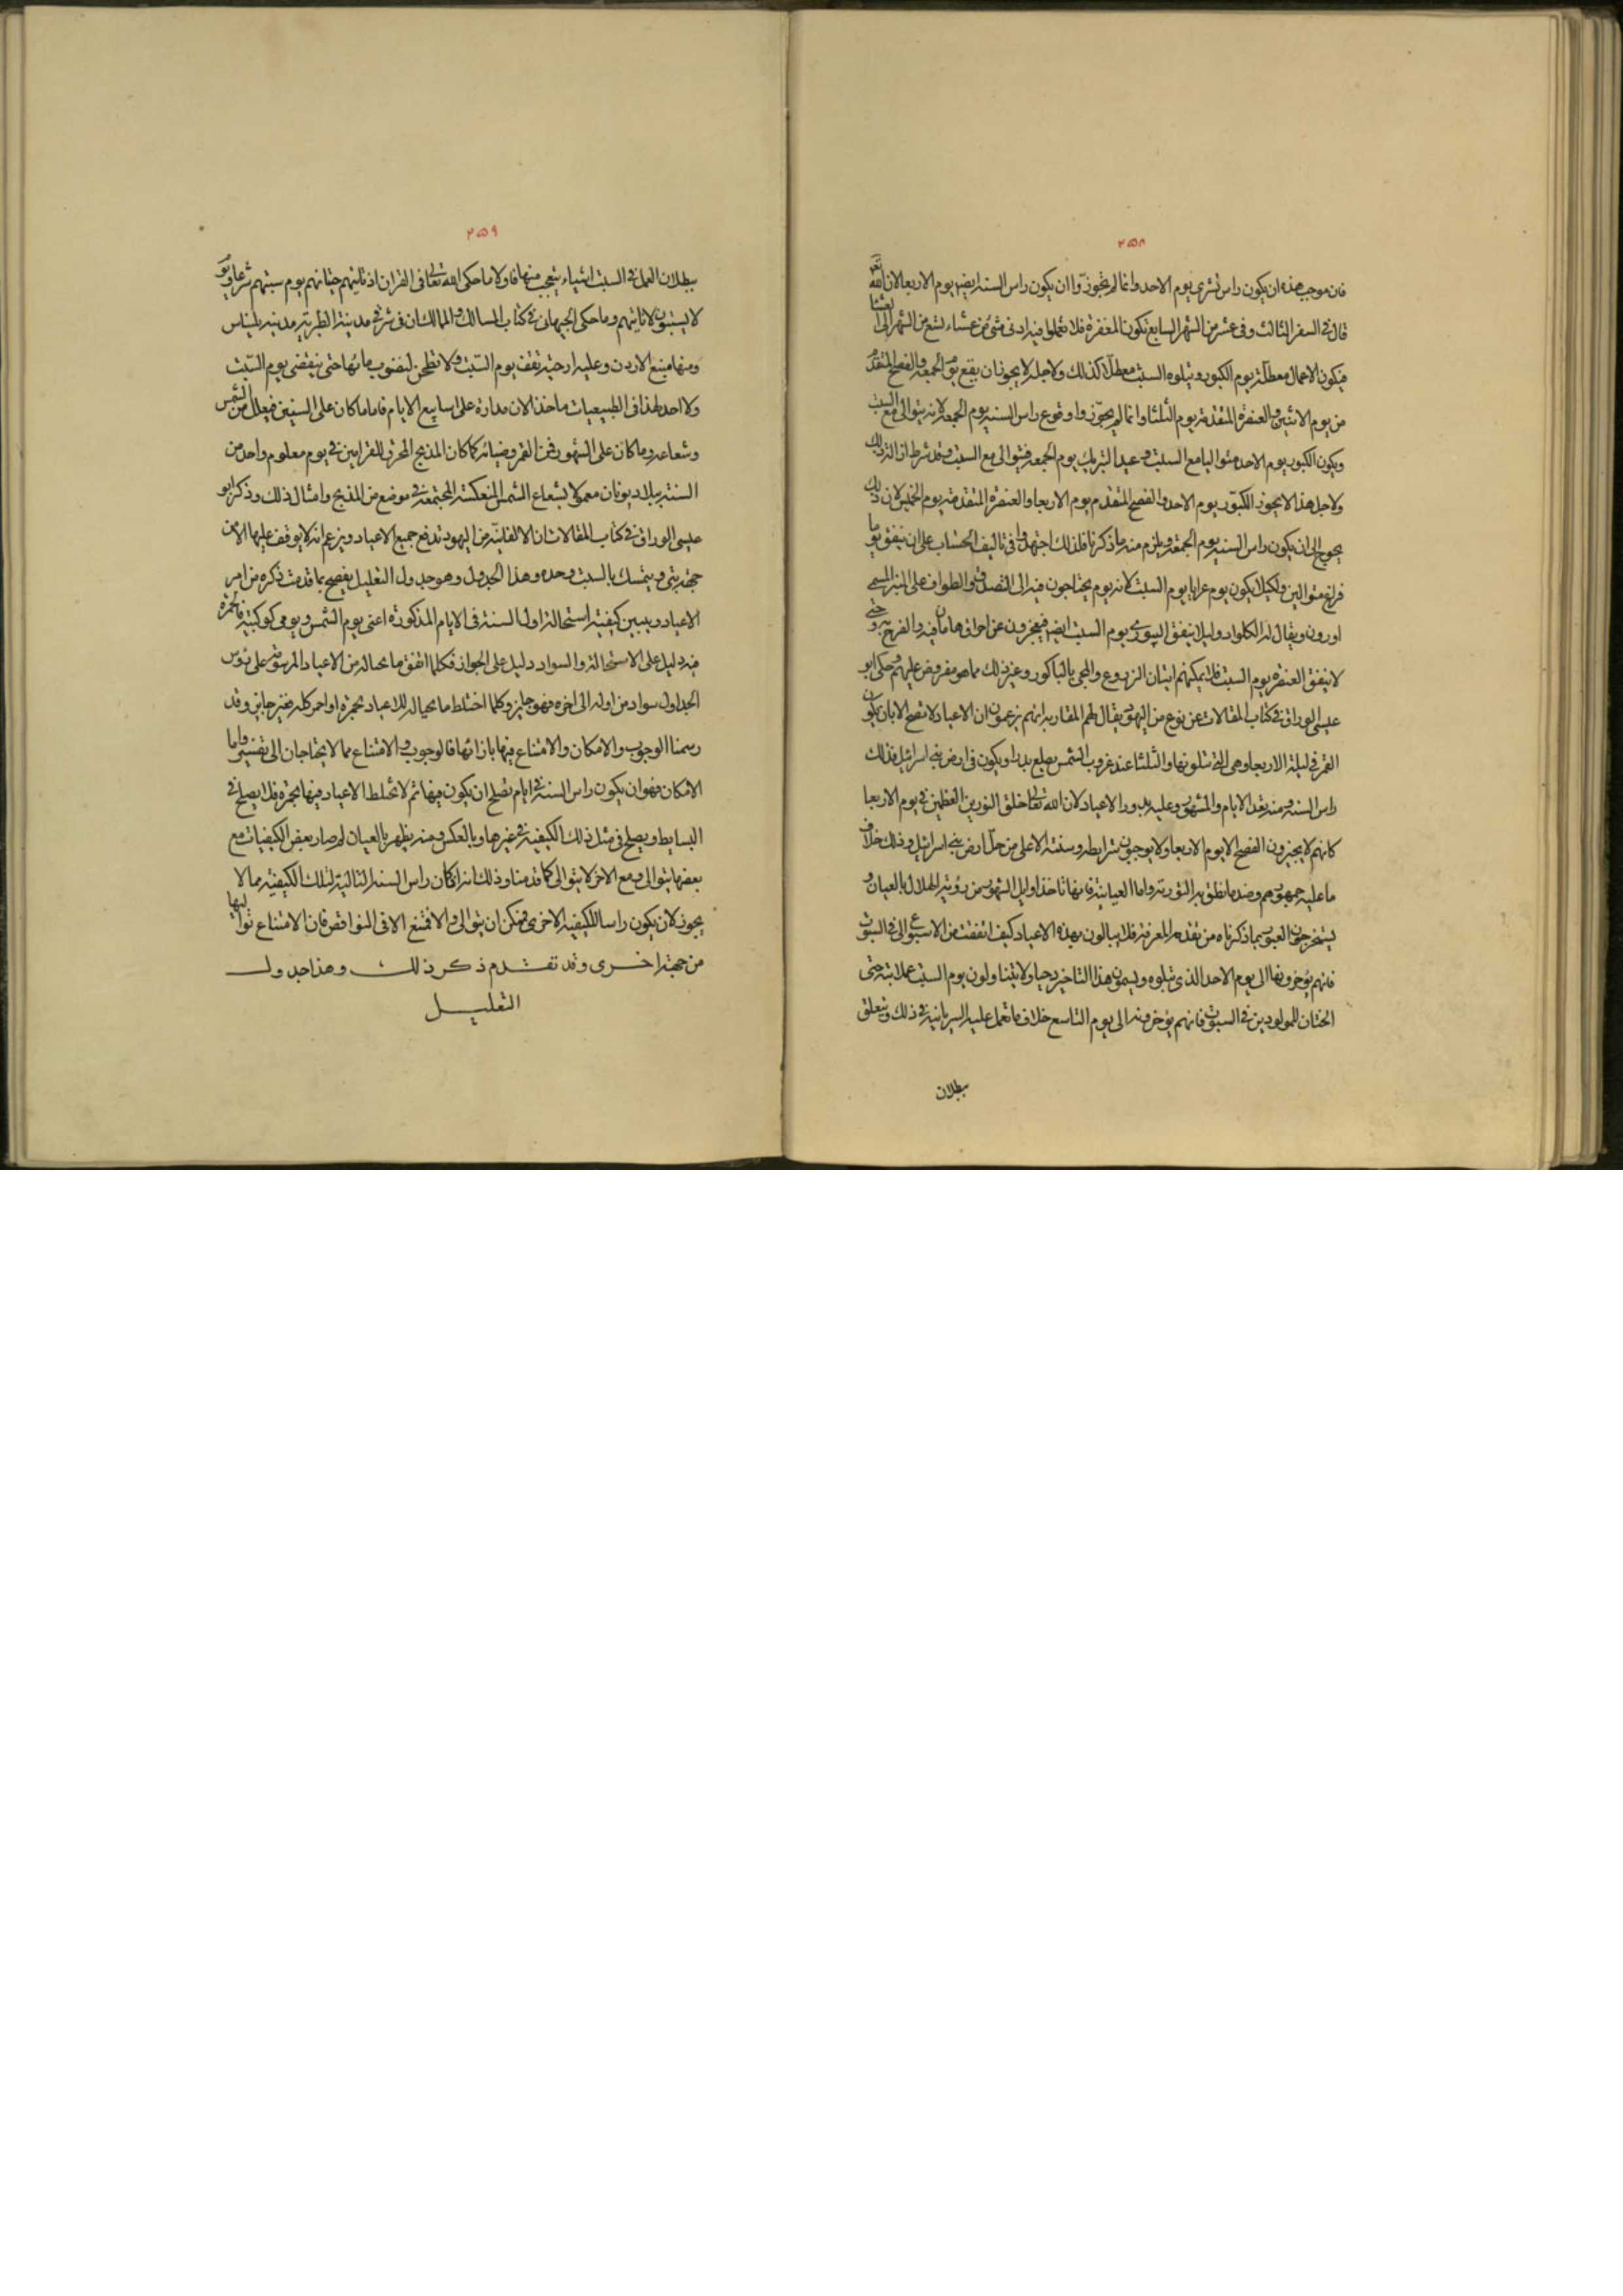 ٢٥٨
فان موجب هذه ان يكون راس تشرى يوم الاحد وانما لم يجوزوا ان يكون راس السنه ايضا يوم الاربعا لان الله تع
قال فى السفر الثالث وفى عشر من الشهر السابع تكون المغفرة فلا تعملوا فيه ادنى شئ من عشاء لتسع من الشهر الى
فيكون الاعمال معطلة يوم الكبور ويتلوه السبت معطلا كذلك ولاجله لا يجوز ان يقع يوم الجمعه والفصح المتقدم
من يوم الاثنين والعنصرة المتقدمة يوم الثلثا وانما لم يجوزوا وقوع راس السنه يوم الجمعه لانه يتوالى مع السبت
ويكون الكبور يوم الاحد متواليا مع السبت وعيد التبريك يوم الجمعه فيتوالى مع السبت وقد شرط ذلك
ولاجل هذا لا يجوز الكبور يوم الاحد والفصح المتقدم يوم الاربعا والعنصرة المتقدمة يوم الخميس لان ذلك
يحوج الى ان يكون راس السنه يوم الجمعة ويلزم منه ما ذكرنا فلذلك اجتهدوا فى تاليف الحساب على ان يتفق يوما
فراغ متواليين ولكيلا يكون يوم عرابا يوم السبت لانه يوم يحتاجون فيه الى التصدق والطواف على المنبر المسمى
اورون ويقال له الكلواد وليلا يتفق البورى يوم السبت ايضا فيعجزون عن احراق هامان فيه والفرح به وحتى
لا يتفق العنصرة يوم السبت فلا يمكنهم اتيان الزروع والمجى بالباكور وغير ذلك مما هو مفروض عليهم وحكى ابو
عيسى الوراق فى كتاب المقالات عن نوع من اليهود يقال لهم المغاربه انهم يزعمون ان الاعياد لا تصح الا بان يكون
القمر فى ليلة الاربعا وهى التى تتلو نهار الثلثا عند غروب الشمس يطلع بدرا ويكون فى ارض بنى اسرائيل فذلك
راس السنه ومنه يعد الايام والشهور وعليه يدور الاعياد لان الله تعالى خلق النورين العظيمين فى يوم الاربعا
كانهم لا يجيزون الفصح الا يوم الاربعا ولا يوجبون شرايطه وسنته الا على من حل ارض بنى اسرائيل وذلك خلاف
ما عليه جمهورهم وضد ما نطق به التورية واما العيانية فانها تاخذ اوايل الشهور من رؤية الهلال بالعيان و
يستخرجون العبور بما ذكرناه من تقدمة المعرفة فلا يبالون بهذه الاعياد كيف اتفقت من الاسبوع الا فى السبوت
فانهم يؤخرونها الى يوم الاحد الذى يتلوه ويسمون هذا التاخير دحيا ولا يتناولون يوم السبت عملا بته حتى
الختان للمولودين فى السبوت فانهم يؤخرونه الى يوم التاسع خلاف ما تعمل عليه الربانية فى ذلك ويتعلق
بطلان
٢٥٩
ببطلان العمل فى السبت اشياء يتعجب منها فاولا ما حكى الله تعالى فى القران اذ تاتيهم حيتانهم يوم سبتهم شرعا ويوم
لا يسبتون لا تاتيهم وما حكى الجيهانى فى كتاب المسالك والممالك ان فى شرقى مدينة الطبرية مدينة بليناس
ومنها منبع الاردن وعليه ارحية تقف يوم السبت ولا تطحن لنضوب مائها حتى ينقضى يوم السبت
ولا اجد لهذا فى الطبيعيات ماخذا لان مداره على اسابيع الايام فاما ما كان على السنين فيعلل من الشمس
وشعاعه وما كان على الشهور فمن القمر وضيائه كما كان المذبح المحرق للقرابين فى يوم معلوم واحد من
السنة ببلاد يونان معمولا بشعاع الشمس المنعكسة المجتمعة فى موضع من المذبح وامثال ذلك وذكر ابو
عيسى الوراق فى كتاب المقالات ان الالفانية من اليهود تدفع جميع الاعياد ويزعم انه لا يوقف عليها الا من
جهة نبى ويتمسك بالسبت وحده وهذا الجدول وهو جدول التعليل يفصح بما قدمت ذكره من امر
الاعياد ويبين كيفية استحالة اول السنة فى الايام المذكورة اعنى يوم الشمس ويومى كوكبتيه فالحمرة
فيه دليل على الاستحالة والسواد دليل على الجواز فكلما اتفق ما بحياله من الاعياد المرسومة على رؤوس
الجداول سواد من اوله الى اخره فهو جايز وكلما اختلط ما بحياله للاعياد بحمرة او احمر كله فغير جايز وقد
رسمنا الوجوب والامكان والامتناع فيها بازائها فالوجوب والامتناع مما لا يحتاجان الى تفسير واما
الامكان فهو ان يكون راس السنة فى ايام تصلح ان يكون فيها ثم لا تختلط الاعياد فيها بحمرة فلا يصلح فى
البسايط ويصلح فى مثل ذلك الكيفية فى غيرها وبالعكس ومنه يظهر بالعيان لم صار بعض الكيفيات مع
بعضها يتوالى ومع الاخر لا يتوالى كما قدمنا وذلك انه ان كان راس السنه التالية لتلك الكيفية مما لا
يجوز لان يكون راسا للكيفيه الاخرى فممكن ان يتوالى والا فتمتنع الا فى النواقص فان الامتناع تواليها
من جهة اخرى وقد تقدم ذكر ذلك وهذا جدول
التعليل